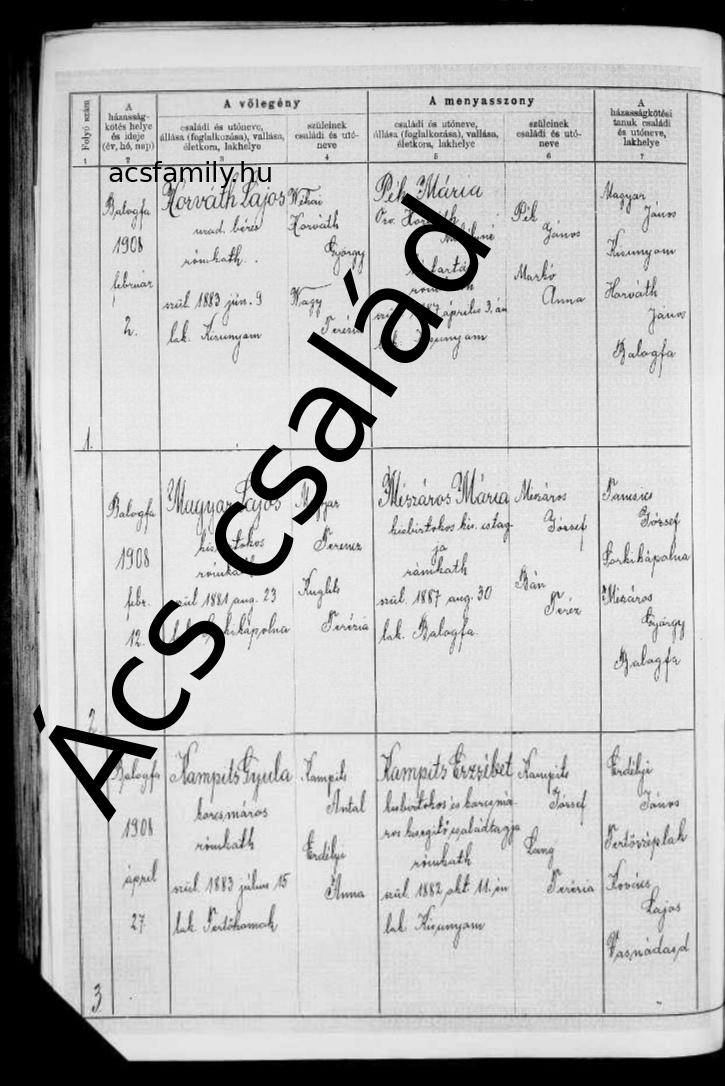 A vőlegény
A menyasszony
Folyó szám
A
házasság-
kötés helye
és ideje
(év, hó, nap)
családi és utóneve,
állása (foglalkozása), vallása,
életkora, lakhelye
szüleinek
családi és utó-
neve
családi és utóneve,
állása (foglalkozása), vallása,
életkora, lakhelye
szüleinek
családi és utó-
neve
A
házasságkötési
tanuk családi
és utóneve,
lakhelye
1
2
3
4
5
6
7
acsfamily.hu
Ács család
1.
Balogfa
1908
február
2.
Horváth Lajos
urad. béres
rómkath.
szül. 1883 jún. 9
lak. Kisunyom
Horváth
György
Nagy
Terézia
Pék Mária
Özv.
április 3.án
Pék
János
Markó
Anna
Magyar
János
Kisunyom
Horváth
János
Balogfa
2
Balogfa
1908
febr.
12.
Magyar Lajos
szül 1881 aug. 23
Magyar
Ferencz
Kuglits
Terézia
Mészáros Mária
kisbirtokos kis. cstag-
ja
rómkath
szül. 1887 aug. 30
lak. Balogfa.
Mészáros
József
Bán
Teréz
József
Sorkikápolna
Mészáros
György
Balogfa
3
Balogfa
1908
april
27
Kampits Gyula
korcsmáros
rómkath
szül. 1883 július 15
lak. Fertőhomok
Kampits
Antal
Erdélyi
Anna
Kampits Erzsébet
kisbirtokos és korcsmá-
ros kisegítő családtagja
rómkath
szül. 1882 okt. 11.én
lak. Kisunyom
Kampits
József
Lang
Terézia
Erdélyi
János
Fertőszéplak
Kovács
Lajos
Vasnádasd